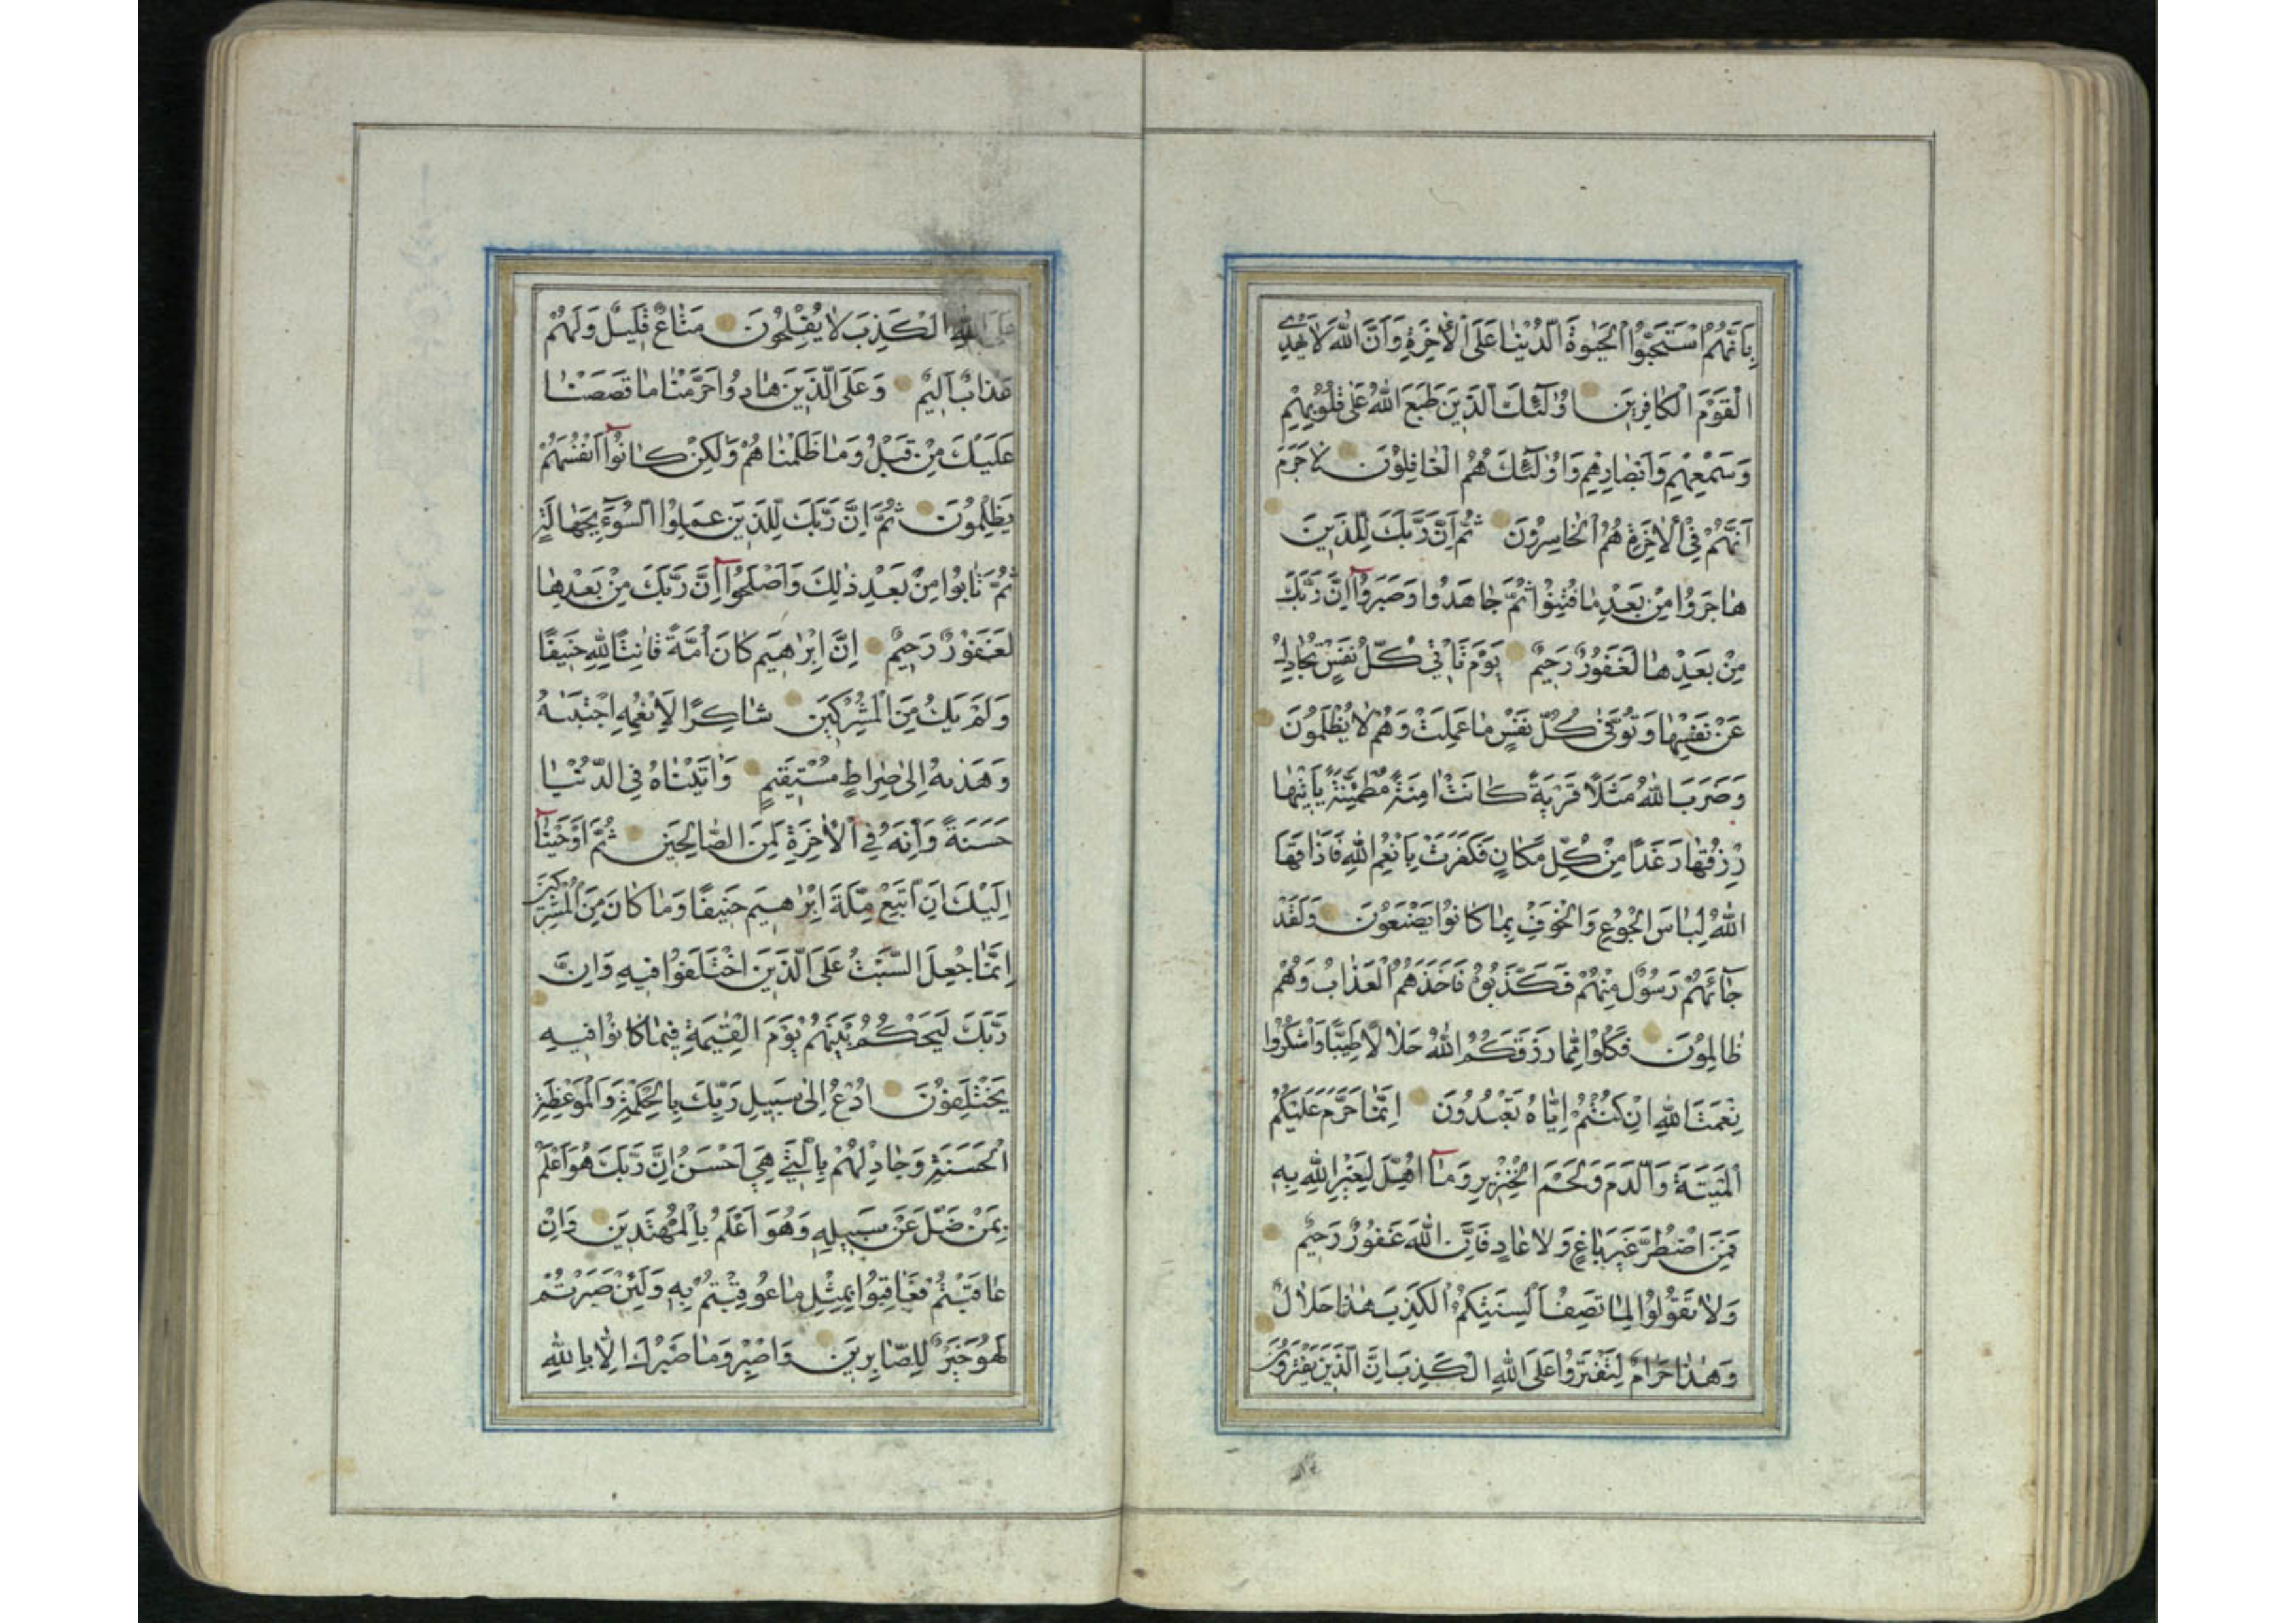 بِاَنَّهُمُ اسْتَحَبُّوا الْحَيٰوةَ الدُّنْيٰا عَلَى الْاٰخِرَةِ وَاَنَّ اللّٰهَ لَا يَهْدِى
الْقَوْمَ الْكَافِرِينَ اُولٰٓئِكَ الَّذِينَ طَبَعَ اللّٰهُ عَلٰى قُلُوبِهِمْ
وَسَمْعِهِمْ وَاَبْصَارِهِمْ وَاُولٰٓئِكَ هُمُ الْغَافِلُونَ لَاجَرَمَ
اَنَّهُمْ فِى الْاٰخِرَةِ هُمُ الْخَاسِرُونَ ثُمَّ اِنَّ رَبَّكَ لِلَّذِينَ
هٰاجَرُوا مِنْ بَعْدِ مٰا فُتِنُوا ثُمَّ جٰاهَدُوا وَصَبَرُوٓا اِنَّ رَبَّكَ
مِنْ بَعْدِهٰا لَغَفُورٌ رَحِيمٌ يَوْمَ تَاْتِى كُلُّ نَفْسٍ تُجَادِلُ
عَنْ نَفْسِهٰا وَتُوَفّٰى كُلُّ نَفْسٍ مٰا عَمِلَتْ وَهُمْ لَا يُظْلَمُونَ
وَضَرَبَ اللّٰهُ مَثَلًا قَرْيَةً كٰانَتْ اٰمِنَةً مُطْمَئِنَّةً يَاْتِيهٰا
رِزْقُهٰا رَغَدًا مِنْ كُلِّ مَكٰانٍ فَكَفَرَتْ بِاَنْعُمِ اللّٰهِ فَاَذَاقَهَا
اللّٰهُ لِبٰاسَ الْجُوعِ وَالْخَوْفِ بِمٰا كٰانُوا يَصْنَعُونَ وَلَقَدْ
جٰٓائَهُمْ رَسُولٌ مِنْهُمْ فَكَذَّبُوهُ فَاَخَذَهُمُ الْعَذَابُ وَهُمْ
ظٰالِمُونَ فَكُلُوا مِمّٰا رَزَقَكُمُ اللّٰهُ حَلٰالًا طَيِّبًا وَاشْكُرُوا
نِعْمَتَ اللّٰهِ اِنْ كُنْتُمْ اِيّٰاهُ تَعْبُدُونَ اِنَّمٰا حَرَّمَ عَلَيْكُمُ
الْمَيْتَةَ وَالدَّمَ وَلَحْمَ الْخِنْزِيرِ وَمٰٓا اُهِلَّ لِغَيْرِ اللّٰهِ بِهِ
فَمَنِ اضْطُرَّ غَيْرَ بٰاغٍ وَلَا عٰادٍ فَاِنَّ اللّٰهَ غَفُورٌ رَحِيمٌ
وَلَا تَقُولُوا لِمٰا تَصِفُ اَلْسِنَتُكُمُ الْكَذِبَ هٰذَا حَلَالٌ
وَهٰذَا حَرَامٌ لِتَفْتَرُوا عَلَى اللّٰهِ الْكَذِبَ اِنَّ الَّذِينَ يَفْتَرُونَ
عَلَى اللّٰهِ الْكَذِبَ لَا يُفْلِحُونَ مَتٰاعٌ قَلِيلٌ وَلَهُمْ
عَذَابٌ اَلِيمٌ وَعَلَى الَّذِينَ هٰادُوا حَرَّمْنٰا مٰا قَصَصْنٰا
عَلَيْكَ مِنْ قَبْلُ وَمٰا ظَلَمْنٰاهُمْ وَلٰكِنْ كٰانُوٓا اَنْفُسَهُمْ
يَظْلِمُونَ ثُمَّ اِنَّ رَبَّكَ لِلَّذِينَ عَمِلُوا السُّوٓءَ بِجَهٰالَةٍ
ثُمَّ تٰابُوا مِنْ بَعْدِ ذٰلِكَ وَاَصْلَحُوٓا اِنَّ رَبَّكَ مِنْ بَعْدِهٰا
لَغَفُورٌ رَحِيمٌ اِنَّ اِبْرٰهِيمَ كٰانَ اُمَّةً قٰانِتًا لِلّٰهِ حَنِيفًا
وَلَمْ يَكُ مِنَ الْمُشْرِكِينَ شٰاكِرًا لِاَنْعُمِهِ اِجْتَبٰيهُ
وَهَدٰيهُ اِلٰى صِرٰاطٍ مُسْتَقِيمٍ وَاٰتَيْنٰاهُ فِى الدُّنْيٰا
حَسَنَةً وَاِنَّهُ فِى الْاٰخِرَةِ لَمِنَ الصّٰالِحِينَ ثُمَّ اَوْحَيْنٰٓا
اِلَيْكَ اَنِ اتَّبِعْ مِلَّةَ اِبْرٰهِيمَ حَنِيفًا وَمٰا كٰانَ مِنَ الْمُشْرِكِينَ
اِنَّمٰا جُعِلَ السَّبْتُ عَلَى الَّذِينَ اخْتَلَفُوا فِيهِ وَاِنَّ
رَبَّكَ لَيَحْكُمُ بَيْنَهُمْ يَوْمَ الْقِيٰمَةِ فِيمٰا كٰانُوا فِيهِ
يَخْتَلِفُونَ اُدْعُ اِلٰى سَبِيلِ رَبِّكَ بِالْحِكْمَةِ وَالْمَوْعِظَةِ
الْحَسَنَةِ وَجٰادِلْهُمْ بِالَّتِى هِيَ اَحْسَنُ اِنَّ رَبَّكَ هُوَ اَعْلَمُ
بِمَنْ ضَلَّ عَنْ سَبِيلِهِ وَهُوَ اَعْلَمُ بِالْمُهْتَدِينَ وَاِنْ
عٰاقَبْتُمْ فَعٰاقِبُوا بِمِثْلِ مٰا عُوقِبْتُمْ بِهِ وَلَئِنْ صَبَرْتُمْ
لَهُوَ خَيْرٌ لِلصّٰابِرِينَ وَاصْبِرْ وَمٰا صَبْرُكَ اِلَّا بِاللّٰهِ